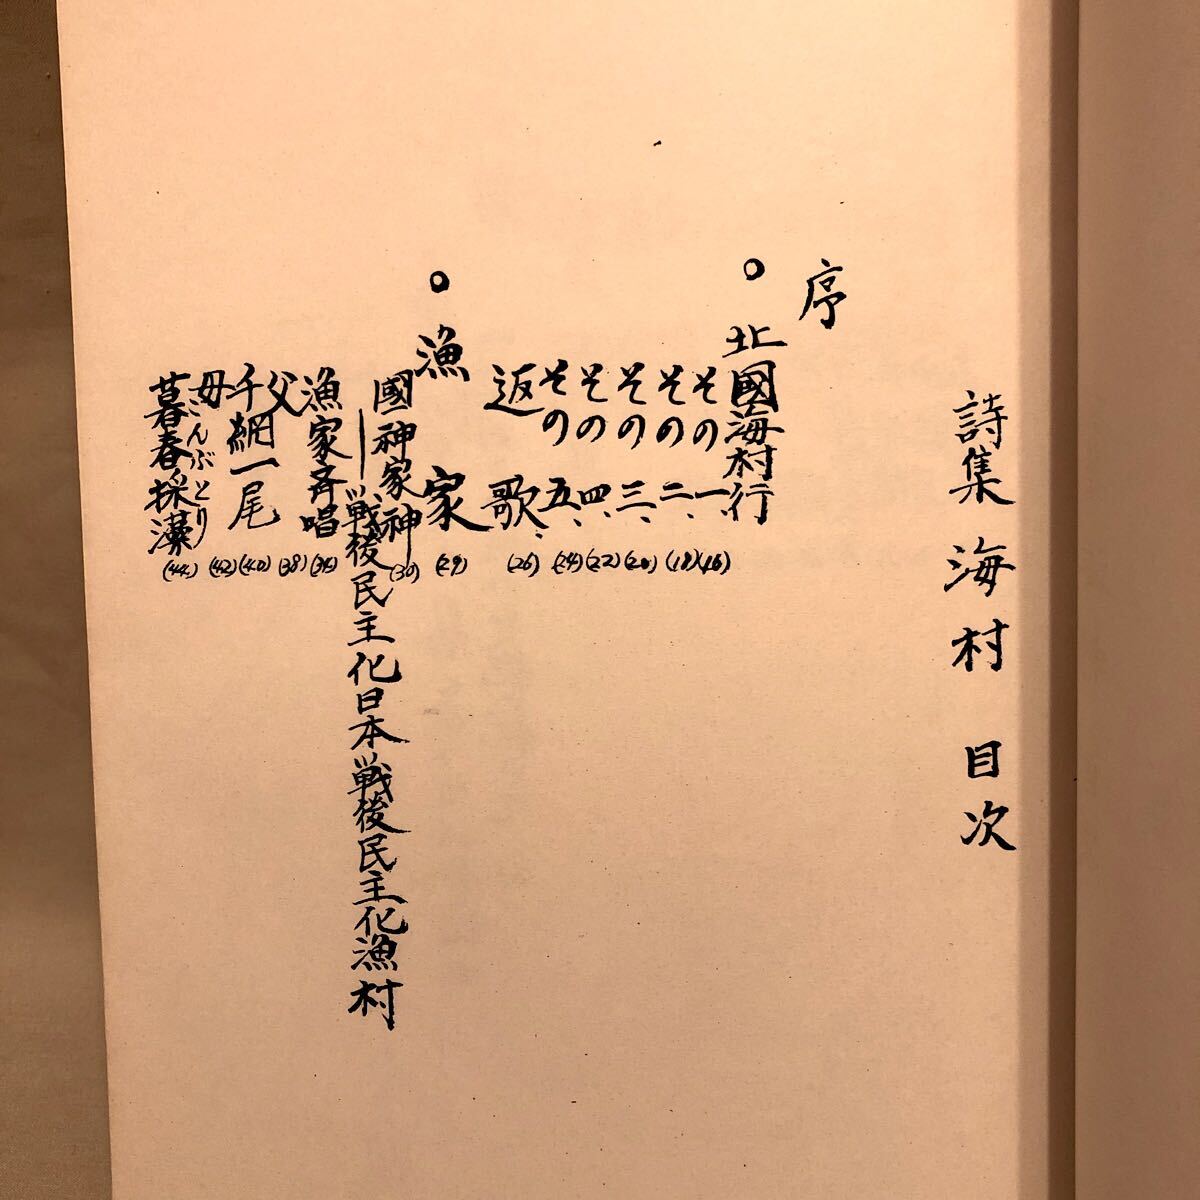 詩集 海村 目次
序
○ 北國海村行
その一、(16)
その二、(18)
その三、(20)
その四、(22)
その五、(24)
返歌、(26)
○ 漁家 (29)
國神家神 (30)
―戦後民主化日本戦後民主化漁村
漁家斉唱 (36)
父 (38)
千網一尾 (40)
母 (42)
暮春採藻 (44)
こんぶとり